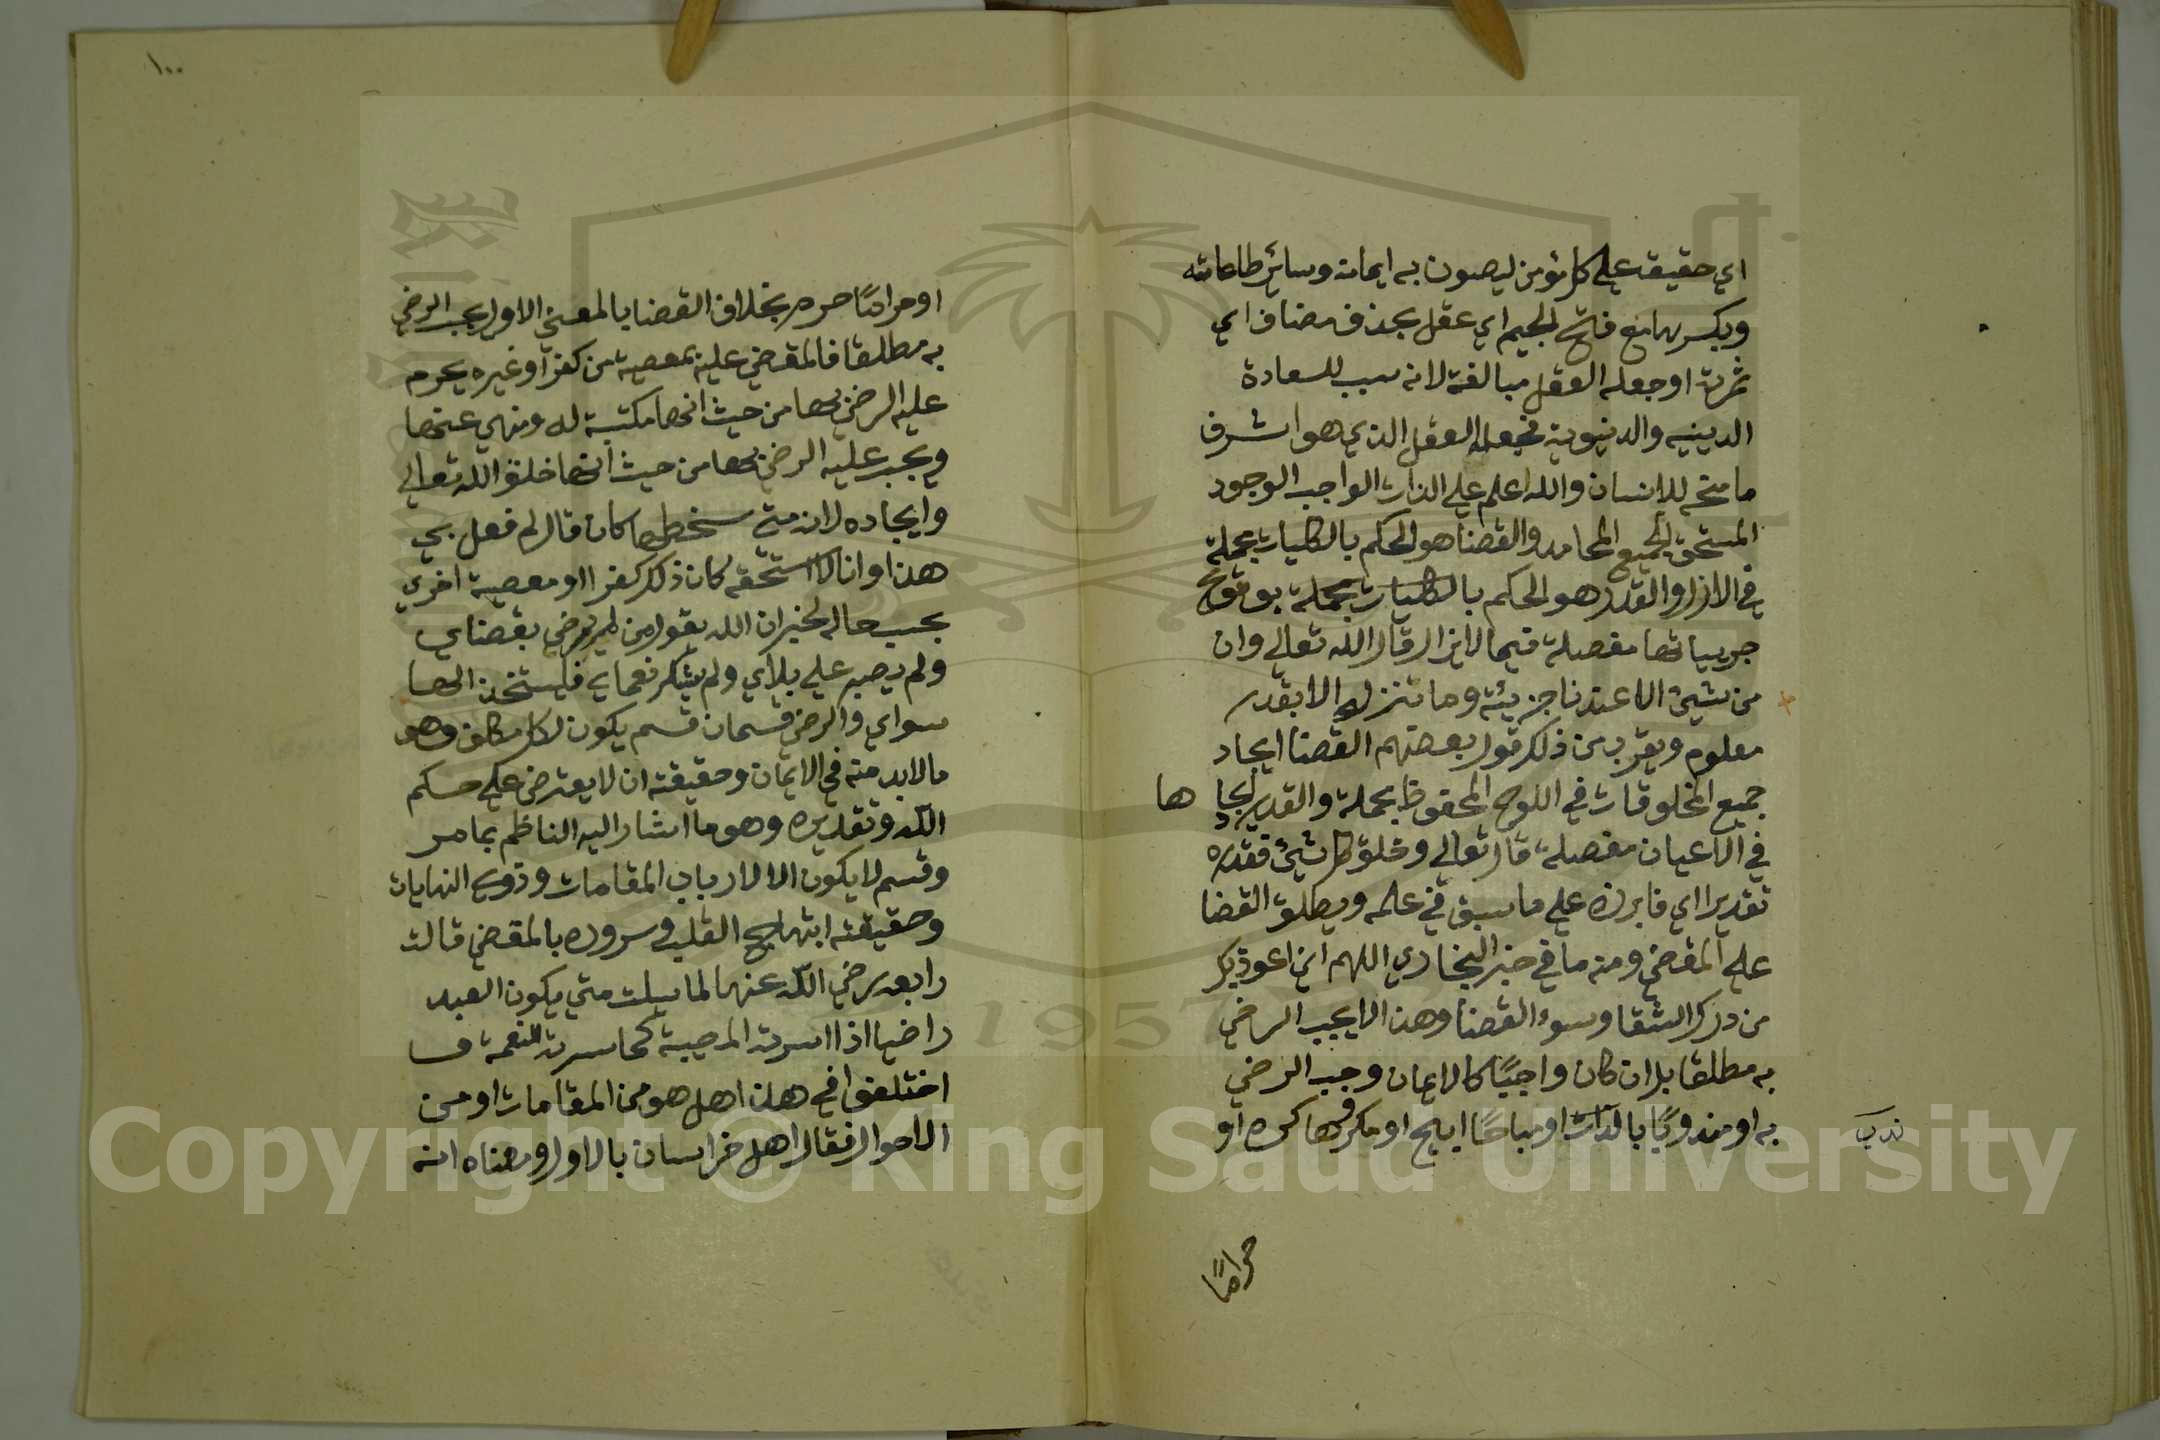 اي حقيقة علي كل مؤمن ليصون به ايمانه وسائر طاعاته
وبكسرها مع فتح الجيم اي عقل بحذف مضاف اي
ثمرة او جعله العقل مبالغة لانه سبب للسعادة
الدينيه والدنيوية فجعله العقل الذي هو اشرف
ما منح للانسان والله اعلم علي الذات الواجب الوجود
المستحق لجميع المحامد والقضا هو الحكم بالكليات بجملة
في الازل والقدر هو الحكم بالكليات بجملة بوقوع
جزيياتها مفصلة فيما لا يزال قال الله تعالي وان
من شيئ الا عندنا جزيئة وما تنزله الا بقدر
معلوم ويقرب من ذلك قول بعضهم القضا ايجاد
جميع المخلوقات في اللوح المحفوظ بجملة والقدير ايجاد ها
في الاعيان مفصلة قال تعالي وخلق كل شيئ فقدره
تقديرا اي فابرزه علي ما سبق في علمه ويطلق القضا
علي المقضي ومنه ما في خبر البخاري اللهم اني اعوذ بك
من درك الشقا وسوء القضا وهذا لا يجب الرضي
به مطلقا بل ان كان واجبًا كالايمان وجب الرضي
به او مندوبًا بالذات او مباحًا ابيح او مكروها كره او
ندب
حرامًا
١٠٠
او حرامًا حرم بخلاف القضا بالمعني الاول يجب الرضي
به مطلقا فالمقضي عليه بمعصية من كفر او غيره يحرم
عليه الرضي بها من حيث انها مكتسبة له ومنهي عنها
ويجب عليه الرضي بها من حيث انها خلق الله تعالي
وايجاده لانه متي سخطها كان قال لم فعل بي
هذا وانا لا استحقه كان ذلك كفرا او معصية اخري
بحسب حاله لخبر ان الله يقول من لم يرضي بقضاي
ولم يصبر علي بلاي ولم يشكر نعماي فليتخذ الها
سواي والرضي قسمان قسم يكون لكل مكلف وهو
ما لابد منه في الايمان وحقيقته ان لا يعترض علي حكم
الله وتقديره وهو ما اشار اليه الناظم بما مر
وقسم لا يكون الا لارباب المقامات وذوي النهايات
وحقيقته ابتهاج القلب وسروره بالمقضي قالت
رابعه رضي الله عنها لما سيلت متي يكون العبد
راضيا اذا اسرته المصيبة كما سرته النعمة ف
اختلفوا في هذا هل هو من المقامات او من
الاحوال فقال اهل خراسان بالاول ومعناه انه
Copyright © King Saud University
1957